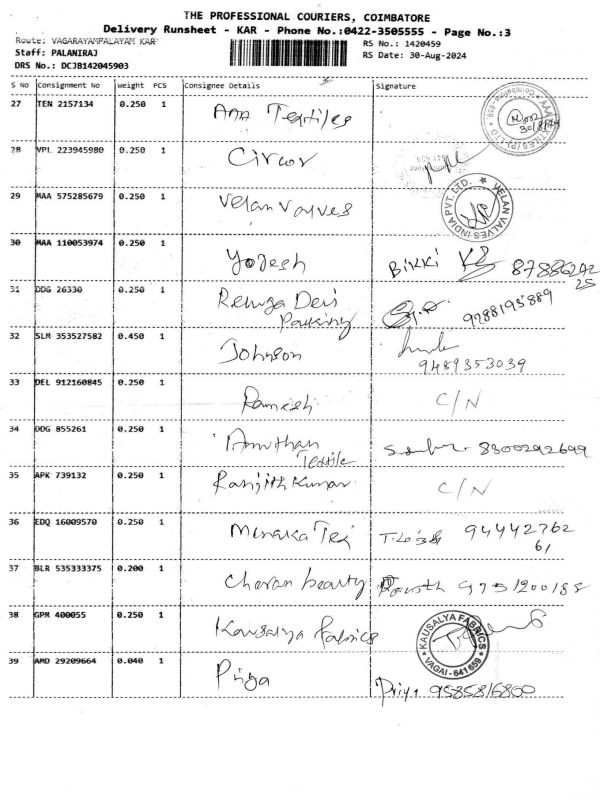 THE PROFESSIONAL COURIERS, COIMBATORE
Delivery Runsheet - KAR - Phone No.:0422-3505555 - Page No.:3
Route: VAGARAYAMPALAYAM KAR
RS No.: 1420459
Staff: PALANIRAJ
RS Date: 30-Aug-2024
DRS No.: DCJB142045903
S No Consignment No Weight PCS Consignee Details Signature
27 TEN 2157134 0.250 1 Ann Textiles
30/8/24
28 VPL 223945980 0.250 1
29 MAA 575285679 0.250 1 Velan Valves VELAN VALVES INDIA PVT. LTD.
30 MAA 110053974 0.250 1 Yogesh Bikki 8788624225
31 DDG 26330 0.250 1 Renuga Devi 9788195889
Packing
32 SLM 353527582 0.450 1 Johnson
9489353039
33 DEL 912160845 0.250 1 Ramesh C/N
34 DDG 855261 0.250 1 Amuthan 8300292699
Textile
35 APK 739132 0.250 1 Ranjith Kumar C/N
36 EDQ 16009570 0.250 1 Menaka Tex 94442762
61
37 BLR 535333375 0.200 1 Charan beauty 9751200188
38 GPM 400055 0.250 1 Kausalya Fabrics KAUSALYA FABRICS VAGAI - 641 659
39 AMD 29209664 0.040 1 Priya Priya 9585816800